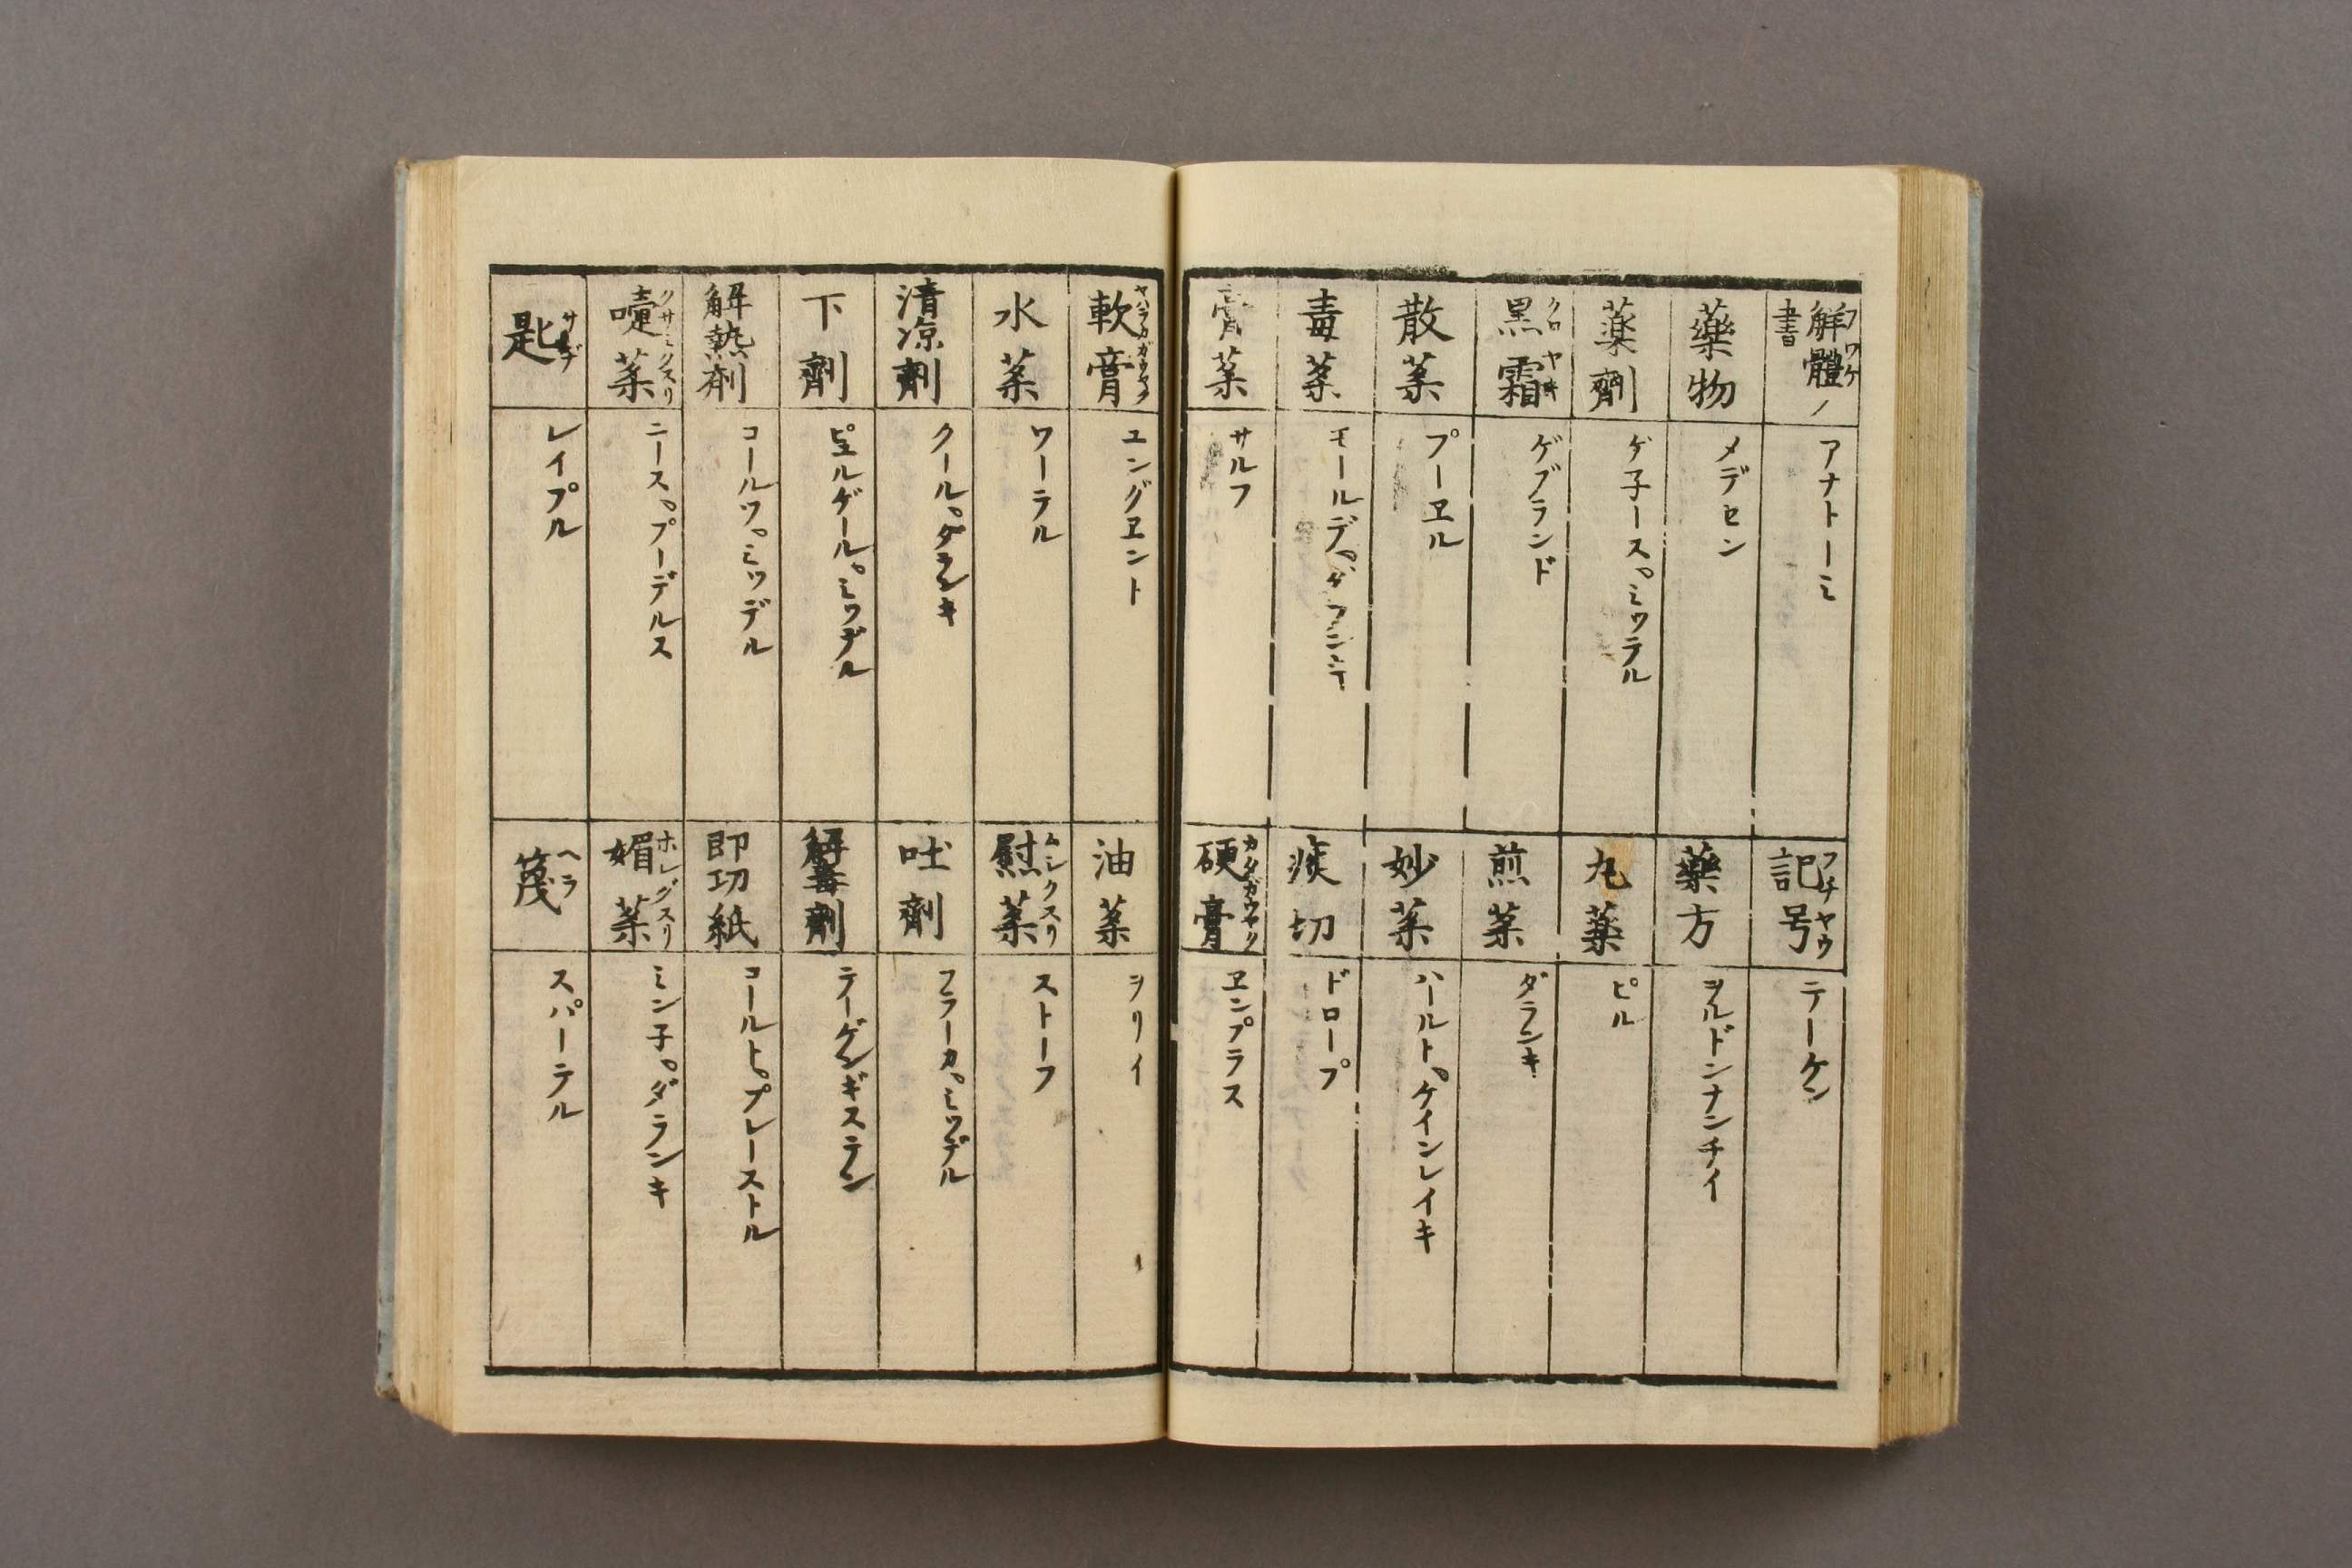 解體ノ書 フワケ
アナトーミ
藥物
メデセン
薬劑
ゲ子ース。ミッテル
黒霜 クロヤキ
ゲブランド
散薬
プーヱル
毒薬
モールデ。
膏薬
サルフ
記号 フチヤウ
テーケン
藥方
ヲルドンナンチイ
丸薬
ピル
煎薬
ダランキ
妙薬
ハールト。ケインレイキ
痰切
ドロープ
硬膏 カタガウヤク
ヱンプラス
軟膏 ヤハラカガウヤク
ユングヱント
水薬
ワーテル
清凉劑
クール。ダランキ
下劑
ピュルゲール。ミッデル
解熱劑
コールツ。ミッデル
嚏薬 クサミクスリ
ニース。プーデルス
匙 サジ
レイプル
油薬
ヲリイ
慰薬 ムシクスリ
ストーフ
吐劑
フラーカ。ミッデル
解毒劑
テーゲンギステン
即功紙
コールト。プレーストル
媚薬 ホレグスリ
ミン子。ダランキ
篾 ヘラ
スパーテル